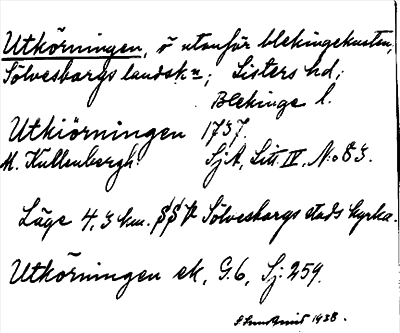 Utkörningen, ö utanför blekingekusten,
Sölvesborgs landsk:n; Listers hd;
Blekinge l.
Utkiörningen 1737.
M. Kullenbergh. SjA, Litt. IV, N:o 83.
Läge 4,3 km. SSV Sölvesborgs stads kyrka.
Utkörningen ek. G.6, Sj: 259.
1938.